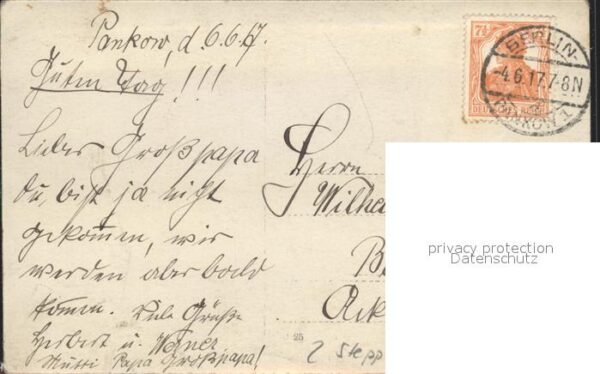 Pankow, d. 6.6.17.
Guten Tag!!!
Lieber Großpapa
du, bist ja nicht
gekommen, wir
werden aber bald
komm. Viele Grüße
Herbert u. Werner
Mutti Papa Großpapa!
7½
BERLIN-
-4.6.17.7-8N
PANKOW 1
Herrn
Wilhe
B
Ack
privacy protection
Datenschutz
25
2 Stepp